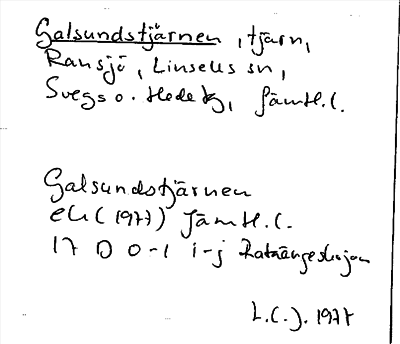 Galsundstjärnen, tjärn,
Ransjö, Linsells sn,
Svegs o. Hede tg, Jämtl. l.
Galsundstjärnen
ek (1977) Jämtl. l.
17 D 0-1 i-j
L.C.J. 1977